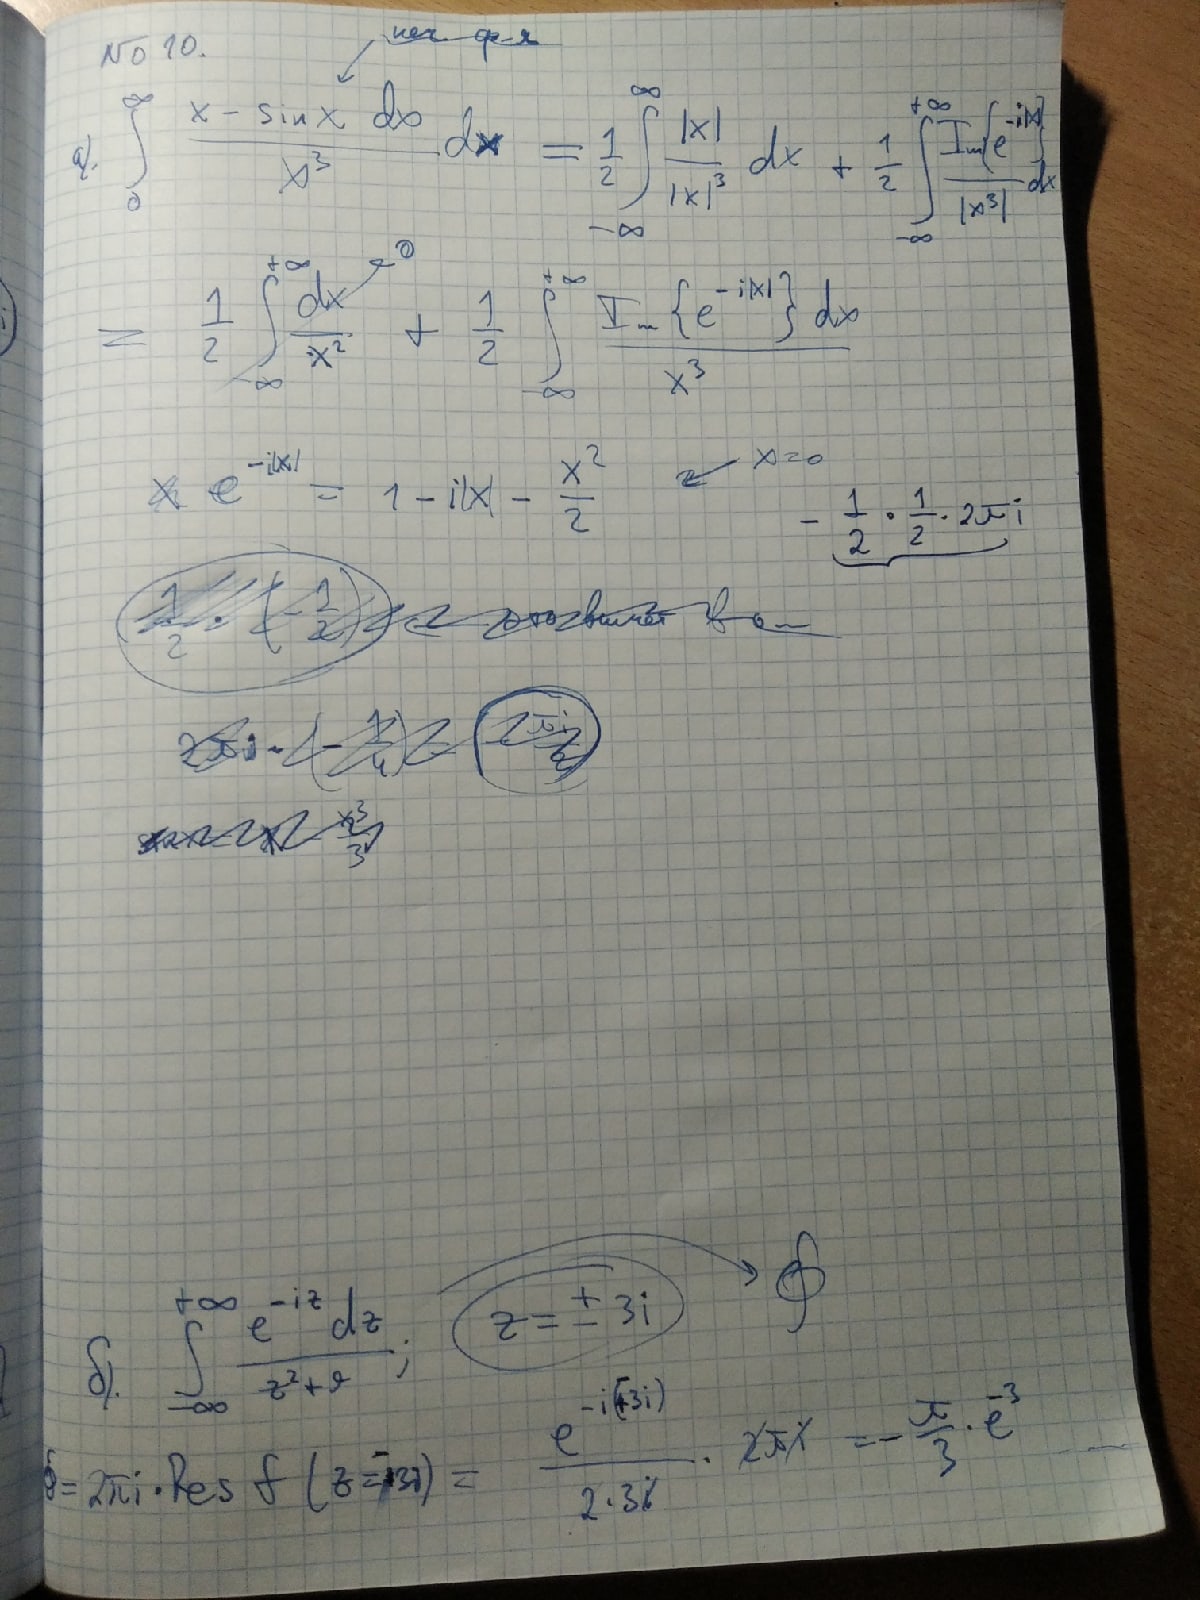 No 10.
неч ф-я
а). ∫_0^∞ (x - sin x dx)/x^3 dx = 1/2 ∫_{-∞}^{∞} |x|/|x|^3 dx + 1/2 ∫_{-∞}^{+∞} Im{e^{-i|x|}}/|x^3| dx
= 1/2 ∫_{-∞}^{+∞} dx/x^2 → 0 + 1/2 ∫_{-∞}^{+∞} Im{e^{-i|x|}} dx / x^3
e^{-i|x|} = 1 - i|x| - x^2/2 ← x=0
- 1/2 · 1/2 · 2πi
1/2 · (-1/2)
2πi · (-1/4) =
б). ∫_{-∞}^{+∞} e^{-iz} dz / (z^2+9) ; z = ± 3i → ∮
∮ = 2πi · Res f (z=-3i) = e^{-i(-3i)} / (2·3i) · 2πi = - π/3 · e^{-3}